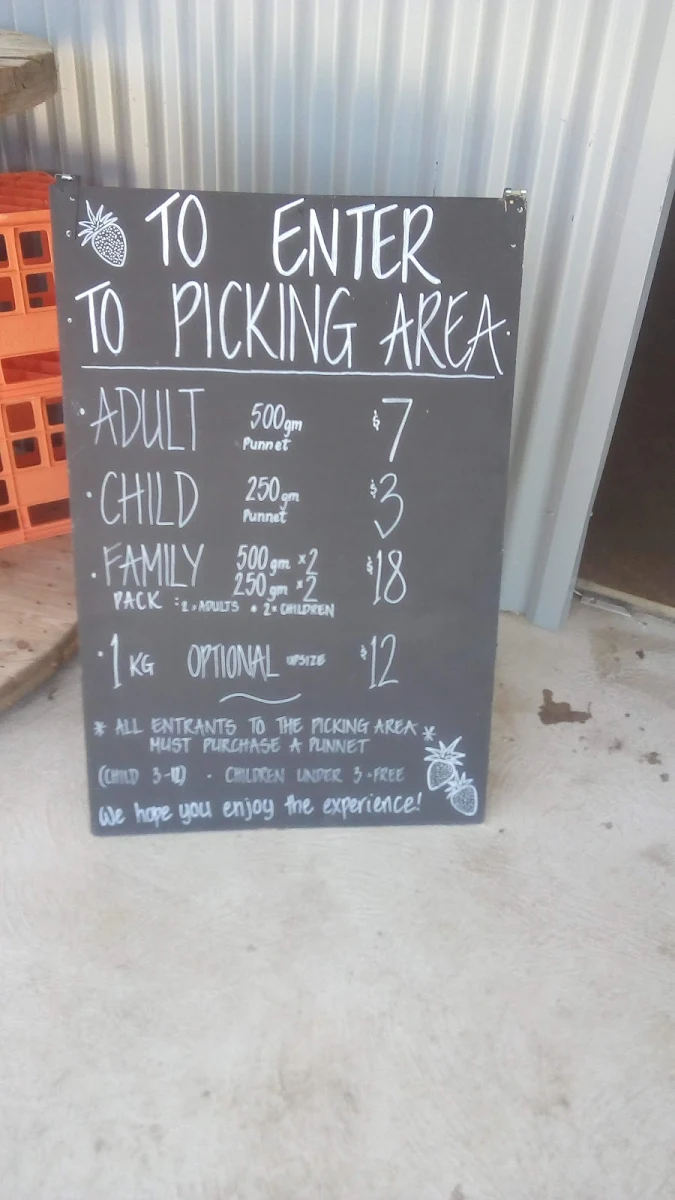 TO ENTER
TO PICKING AREA
• ADULT 500gm Punnet $7
• CHILD 250gm Punnet $3
• FAMILY PACK 500gm x2 250gm x2 $18
: 2 x ADULTS + 2 x CHILDREN
• 1 KG OPTIONAL UPSIZE $12
* ALL ENTRANTS TO THE PICKING AREA *
MUST PURCHASE A PUNNET
(CHILD 3-12) • CHILDREN UNDER 3 = FREE
We hope you enjoy the experience!